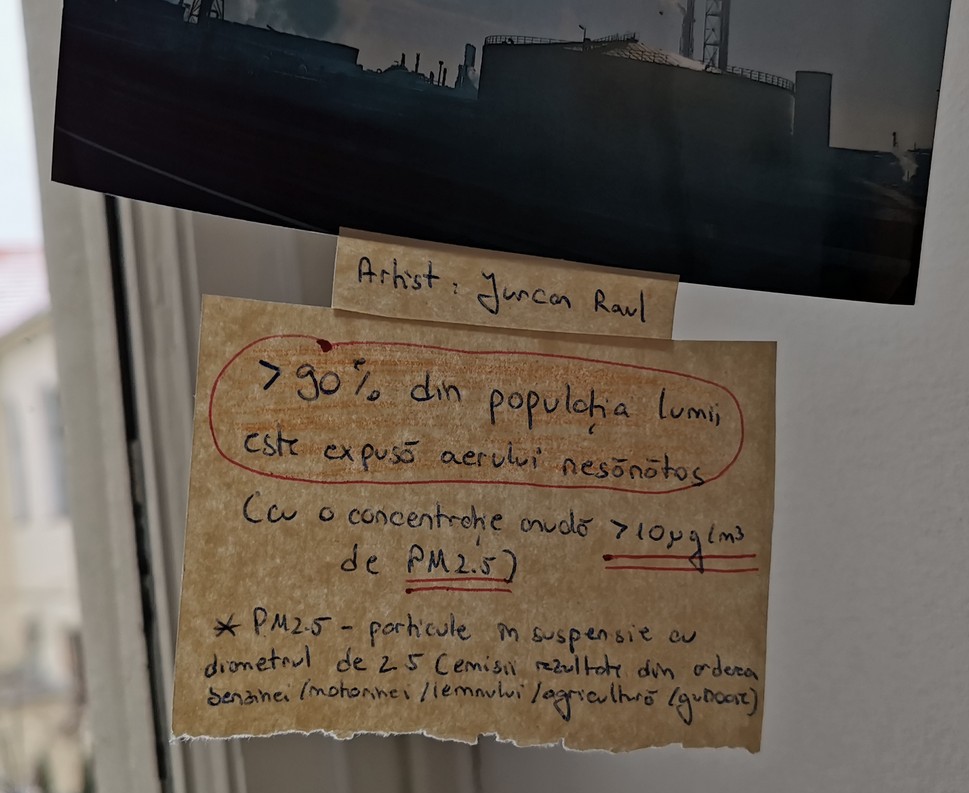 Artist : Jurcan Raul
> 90% din populația lumii
este expusă aerului nesănătos
(cu o concentrație anuală >10µg/m³
de PM2.5)
* PM2.5 - particule în suspensie cu
diametrul de 2.5 (emisii rezultate din arderea
benzinei/motorinei/lemnului/agricultură/gunoaie)